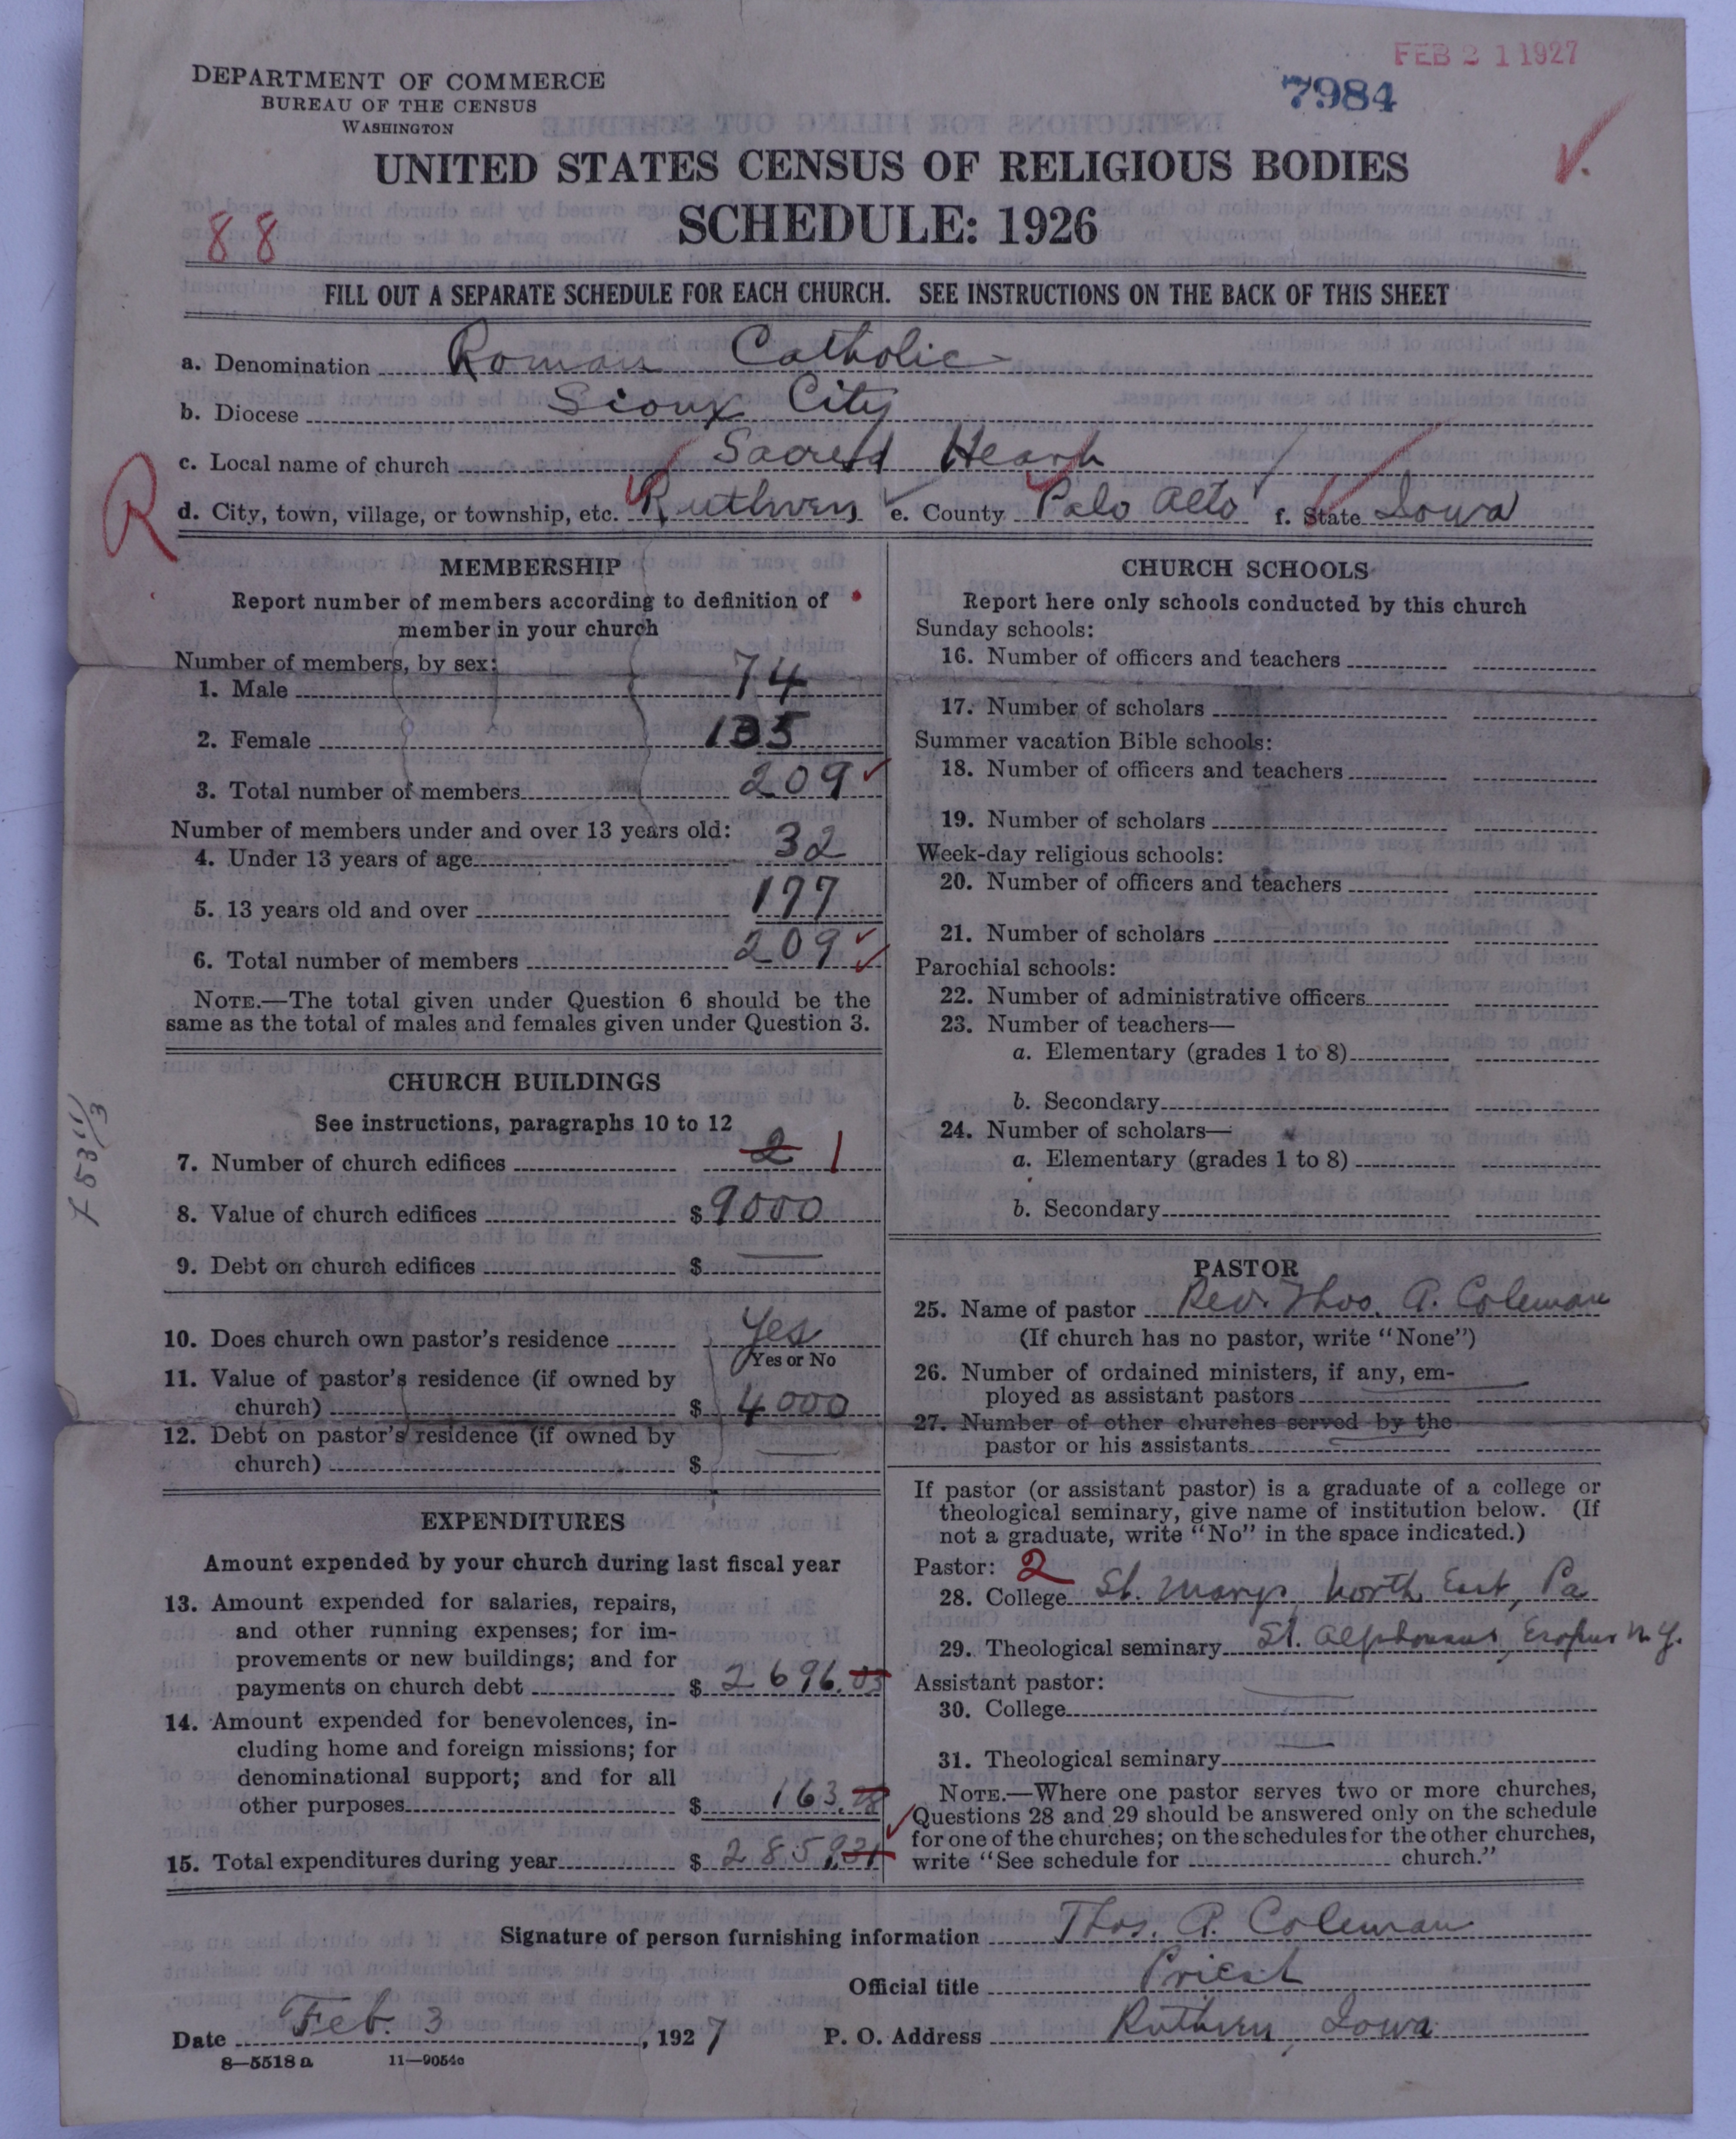 FEB 21 1927
7984
DEPARTMENT OF COMMERCE
BUREAU OF THE CENSUS
WASHINGTON
UNITED STATES CENSUS OF RELIGIOUS BODIES
SCHEDULE: 1926
88
FILL OUT A SEPARATE SCHEDULE FOR EACH CHURCH. SEE INSTRUCTIONS ON THE BACK OF THIS SHEET
a. Denomination Roman Catholic
b. Diocese Sioux City
c. Local name of church Sacred Heart
R
d. City, town, village, or township, etc. Ruthven e. County Palo Alto f. State Iowa
MEMBERSHIP
Report number of members according to definition of
member in your church
Number of members, by sex:
1. Male 74
2. Female 135
3. Total number of members 209
Number of members under and over 13 years old:
4. Under 13 years of age 32
5. 13 years old and over 177
6. Total number of members 209
NOTE.—The total given under Question 6 should be the
same as the total of males and females given under Question 3.
CHURCH BUILDINGS
See instructions, paragraphs 10 to 12
7. Number of church edifices 2 1
8. Value of church edifices $ 9000
9. Debt on church edifices $
10. Does church own pastor's residence Yes
Yes or No
11. Value of pastor's residence (if owned by
church) $ 4000
12. Debt on pastor's residence (if owned by
church) $
EXPENDITURES
Amount expended by your church during last fiscal year
13. Amount expended for salaries, repairs,
and other running expenses; for im-
provements or new buildings; and for
payments on church debt $ 2696.03
14. Amount expended for benevolences, in-
cluding home and foreign missions; for
denominational support; and for all
other purposes $ 163.28
15. Total expenditures during year $ 2859.31
CHURCH SCHOOLS
Report here only schools conducted by this church
Sunday schools:
16. Number of officers and teachers
17. Number of scholars
Summer vacation Bible schools:
18. Number of officers and teachers
19. Number of scholars
Week-day religious schools:
20. Number of officers and teachers
21. Number of scholars
Parochial schools:
22. Number of administrative officers
23. Number of teachers—
a. Elementary (grades 1 to 8)
b. Secondary
24. Number of scholars—
a. Elementary (grades 1 to 8)
b. Secondary
PASTOR
25. Name of pastor Rev. Thos. A. Coleman
(If church has no pastor, write "None")
26. Number of ordained ministers, if any, em-
ployed as assistant pastors
27. Number of other churches served by the
pastor or his assistants
If pastor (or assistant pastor) is a graduate of a college or
theological seminary, give name of institution below. (If
not a graduate, write "No" in the space indicated.)
Pastor: 2
28. College St. Marys, North East, Pa
29. Theological seminary St. Alphonsus, Esopus N.Y.
Assistant pastor:
30. College
31. Theological seminary
NOTE.—Where one pastor serves two or more churches,
Questions 28 and 29 should be answered only on the schedule
for one of the churches; on the schedules for the other churches,
write "See schedule for church."
Signature of person furnishing information Thos. A. Coleman
Official title Priest
Date Feb. 3, 1927 P. O. Address Ruthven, Iowa
8—5518 a 11—9054c